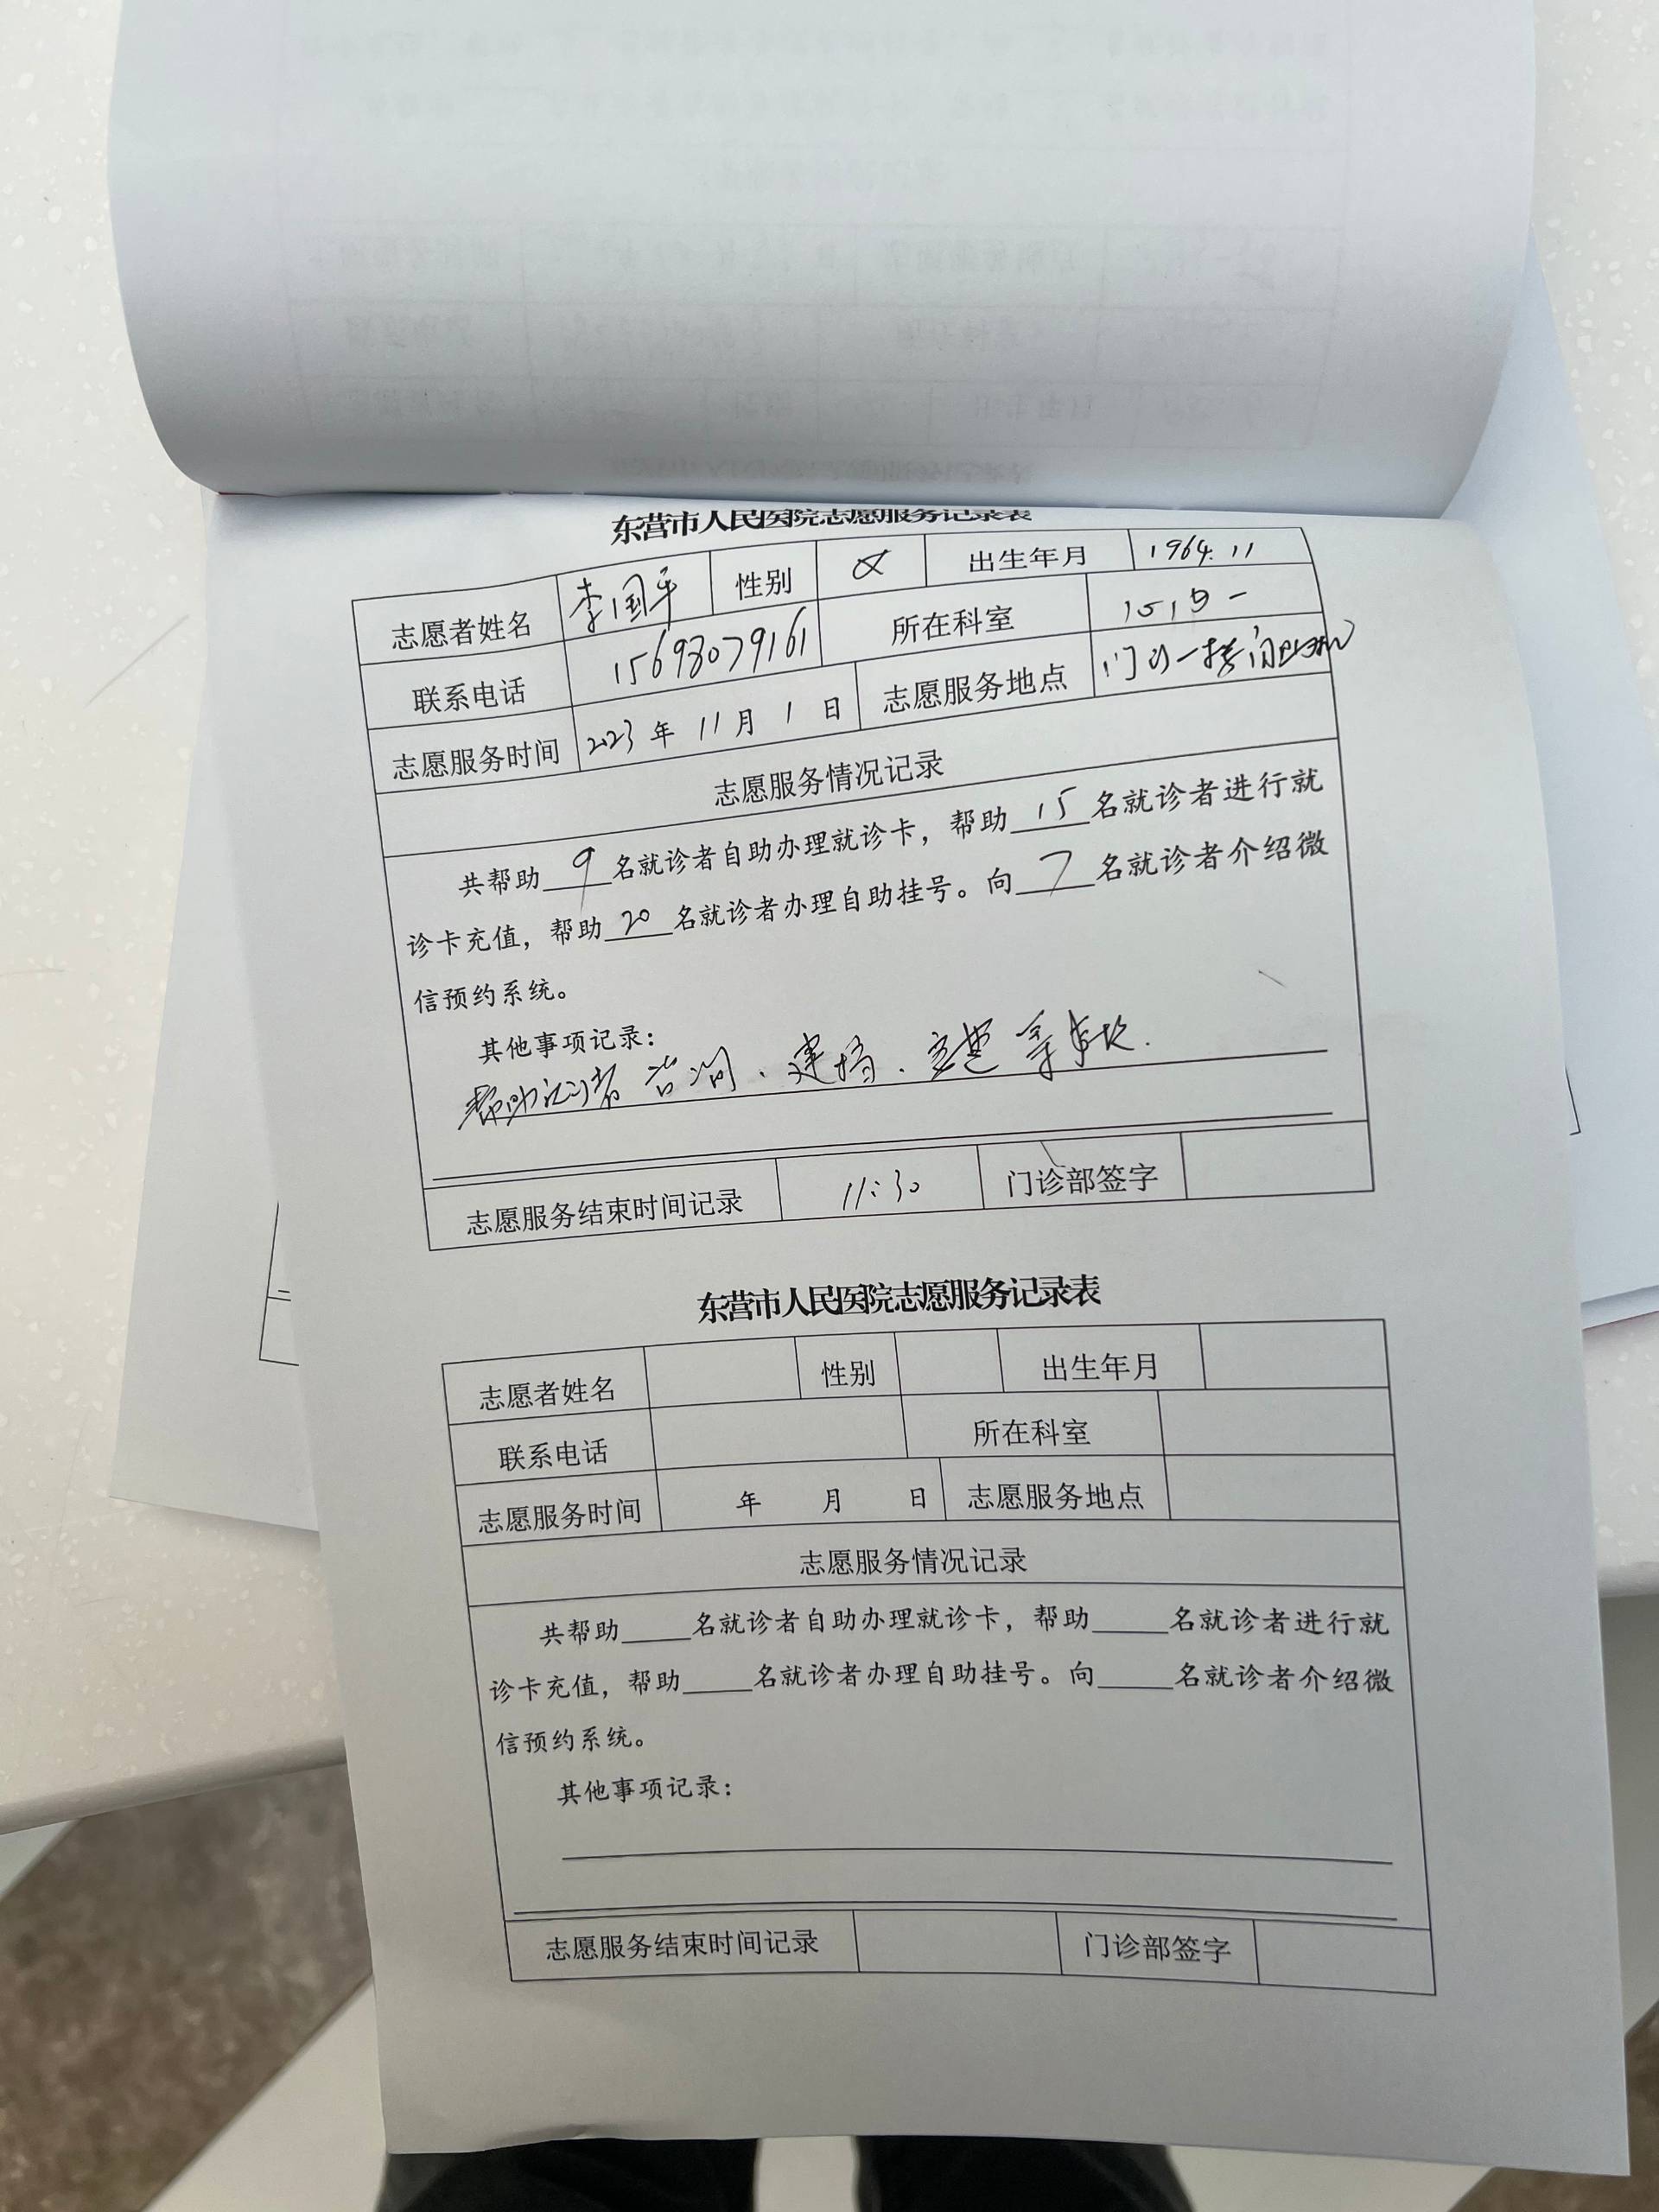 东营市人民医院志愿服务记录表
志愿者姓名 李国平 性别 女 出生年月 1964.11
联系电话 15698079161 所在科室
志愿服务时间 2023年 11月 1日 志愿服务地点 门诊一楼
志愿服务情况记录
共帮助 9 名就诊者自助办理就诊卡，帮助 15 名就诊者进行就
诊卡充值，帮助 20 名就诊者办理自助挂号。向 7 名就诊者介绍微
信预约系统。
其他事项记录：
帮助 者咨询、建档、 等事项.
志愿服务结束时间记录 11:30 门诊部签字
东营市人民医院志愿服务记录表
志愿者姓名 性别 出生年月
联系电话 所在科室
志愿服务时间 年 月 日 志愿服务地点
志愿服务情况记录
共帮助_____名就诊者自助办理就诊卡，帮助_____名就诊者进行就
诊卡充值，帮助_____名就诊者办理自助挂号。向_____名就诊者介绍微
信预约系统。
其他事项记录：
志愿服务结束时间记录 门诊部签字